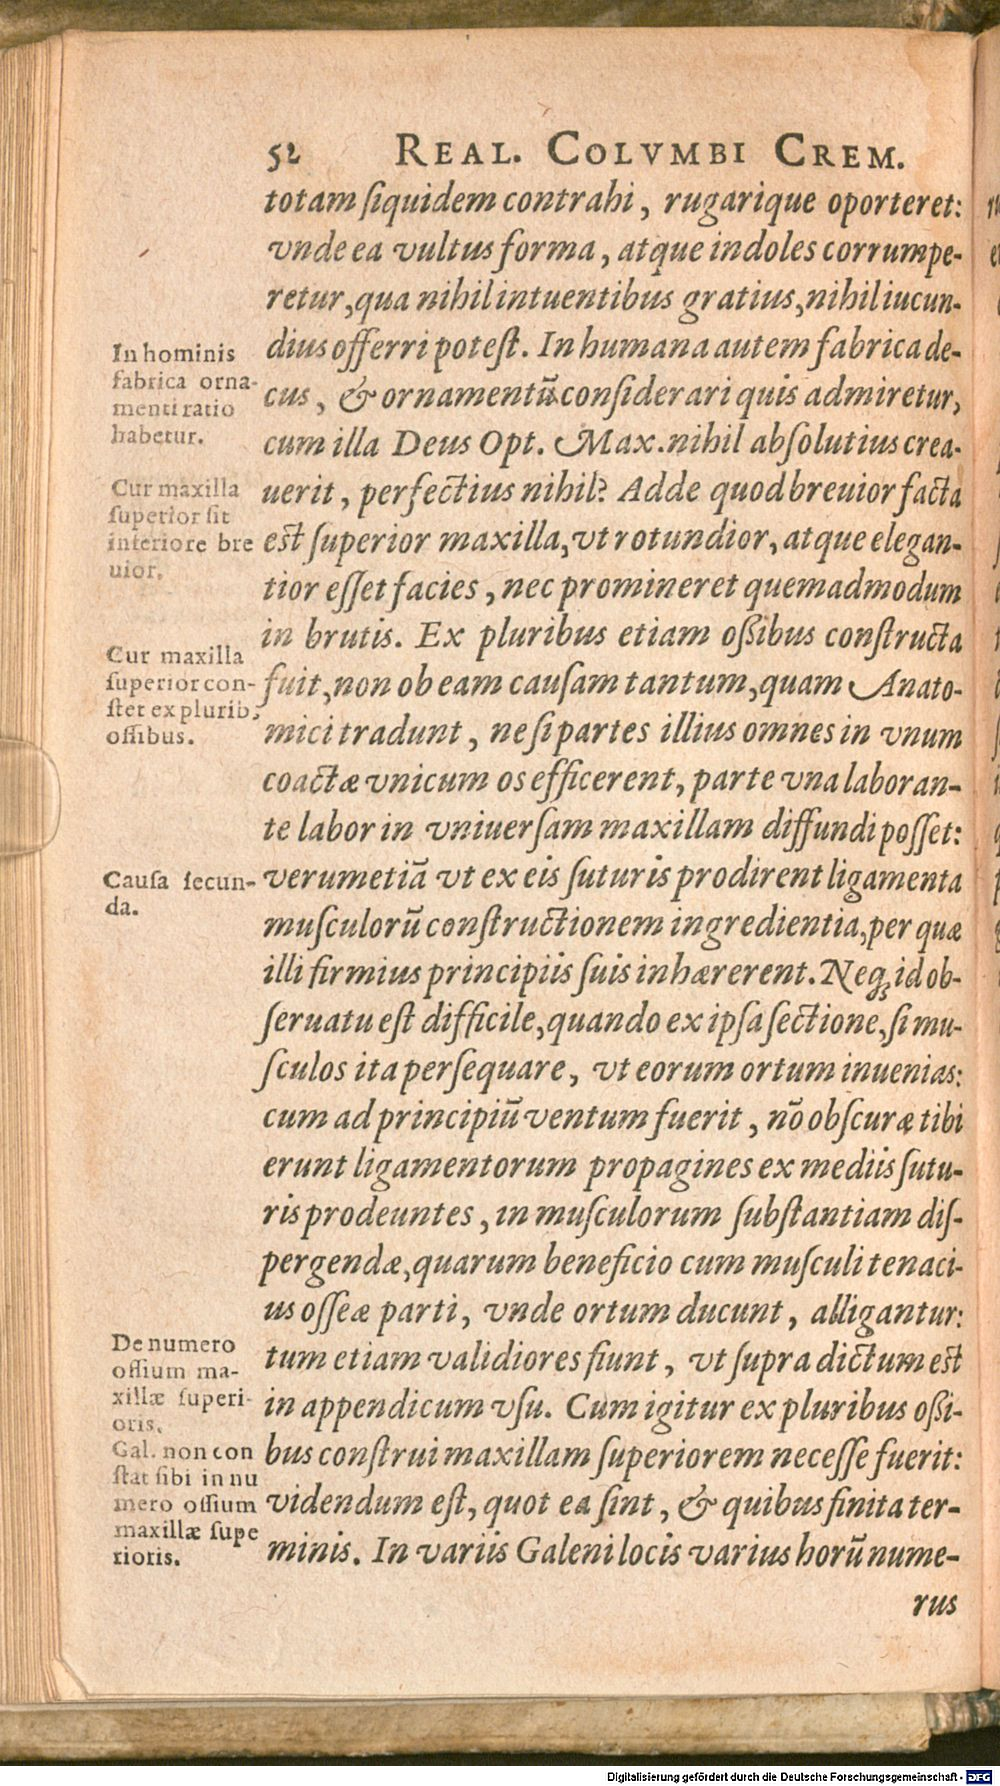 52 REAL. COLVMBI CREM.
totam ſiquidem contrahi, rugarique oporteret:
vnde ea vultus forma, atque indoles corrumpe-
retur, qua nihil intuentibus gratius, nihil iucun-
dius offerri poteſt. In humana autem fabrica de-
cus, & ornamentū conſiderari quis admiretur,
cum illa Deus Opt. Max. nihil abſolutius crea-
uerit, perfectius nihil? Adde quod breuior facta
eſt ſuperior maxilla, vt rotundior, atque elegan-
tior eſſet facies, nec promineret quemadmodum
in brutis. Ex pluribus etiam oßibus conſtructa
fuit, non ob eam cauſam tantum, quam Anato-
mici tradunt, ne ſi partes illius omnes in vnum
coactæ vnicum os efficerent, parte vna laboran-
te labor in vniuerſam maxillam diffundi poſſet:
verumetiā vt ex eis ſuturis prodirent ligamenta
muſculorū conſtructionem ingredientia, per quæ
illi firmius principiis ſuis inhærerent. Neq; id ob-
ſeruatu eſt difficile, quando ex ipſa ſectione, ſi mu-
ſculos ita perſequare, vt eorum ortum inuenias:
cum ad principiū ventum fuerit, nō obſcuræ tibi
erunt ligamentorum propagines ex mediis ſutu-
ris prodeuntes, in muſculorum ſubſtantiam diſ-
pergendæ, quarum beneficio cum muſculi tenaci-
us oſſeæ parti, vnde ortum ducunt, alligantur:
tum etiam validiores fiunt, vt ſupra dictum eſt
in appendicum vſu. Cum igitur ex pluribus oßi-
bus conſtrui maxillam ſuperiorem neceſſe fuerit:
videndum eſt, quot ea ſint, & quibus finita ter-
minis. In variis Galeni locis varius horū nume-
rus
In hominis
fabrica orna-
menti ratio
habetur.
Cur maxilla
ſuperior ſit
inferiore bre
uior.
Cur maxilla
ſuperior con-
ſtet ex plurib;
oſſibus.
Cauſa ſecun-
da.
De numero
oſſium ma-
xillæ ſuperi-
oris.
Gal. non con
ſtat ſibi in nu
mero oſſium
maxillæ ſupe
rioris.
Digitalisierung gefördert durch die Deutsche Forschungsgemeinschaft - DFG